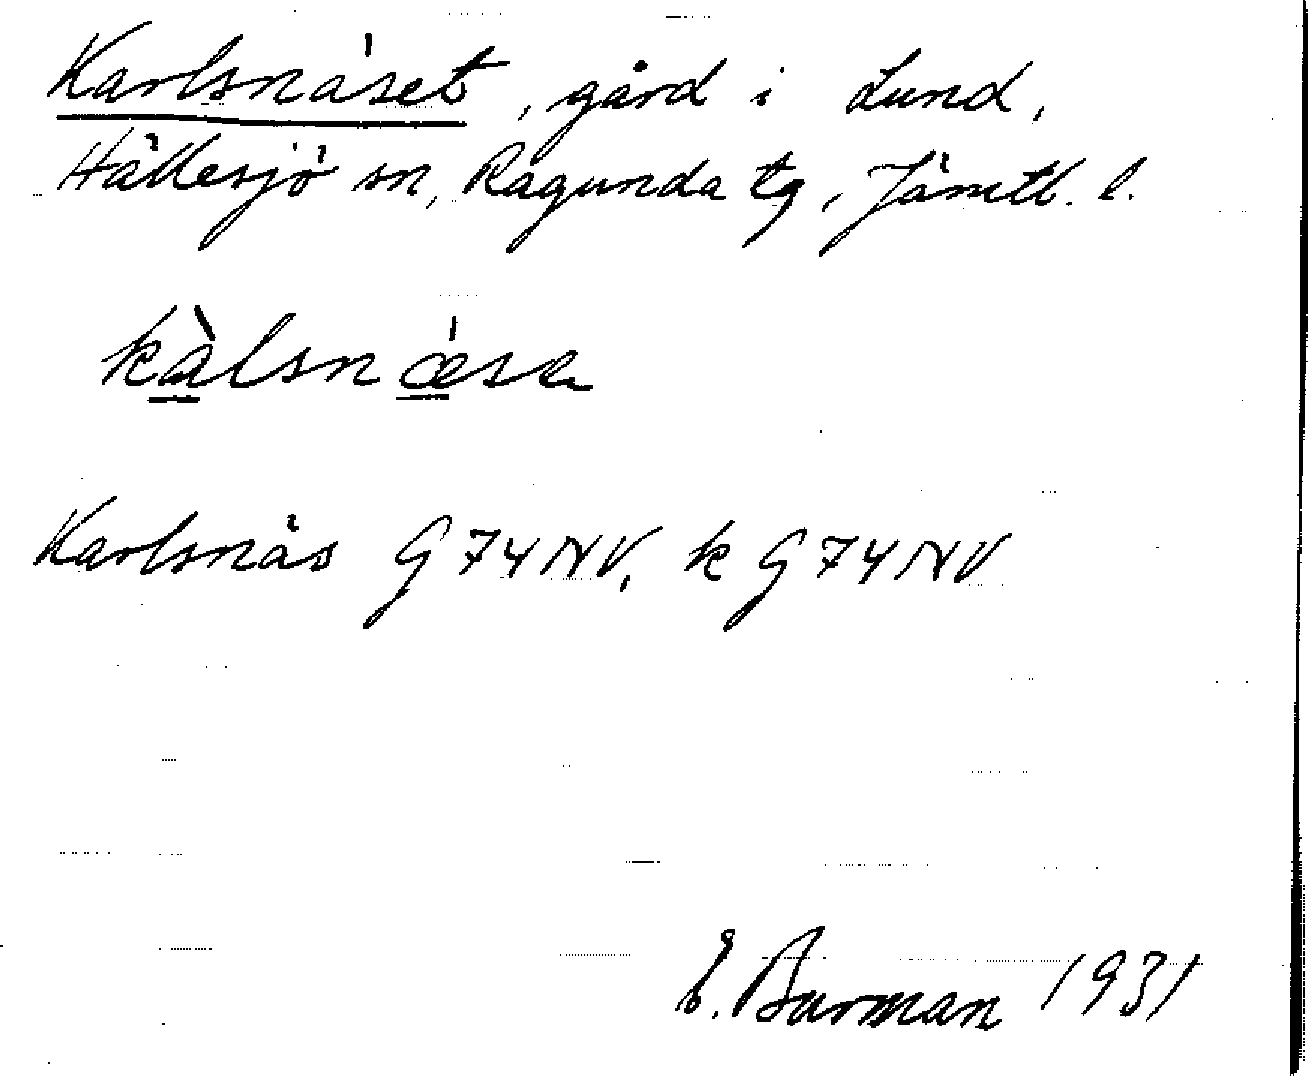 Karlsnäset, gård i Lund,
Hällesjö sn, Ragunda tg, Jämtl. l.
kàlsnǽsa
Karlsnäs G74NV, k G74NV
E. Burman 1931